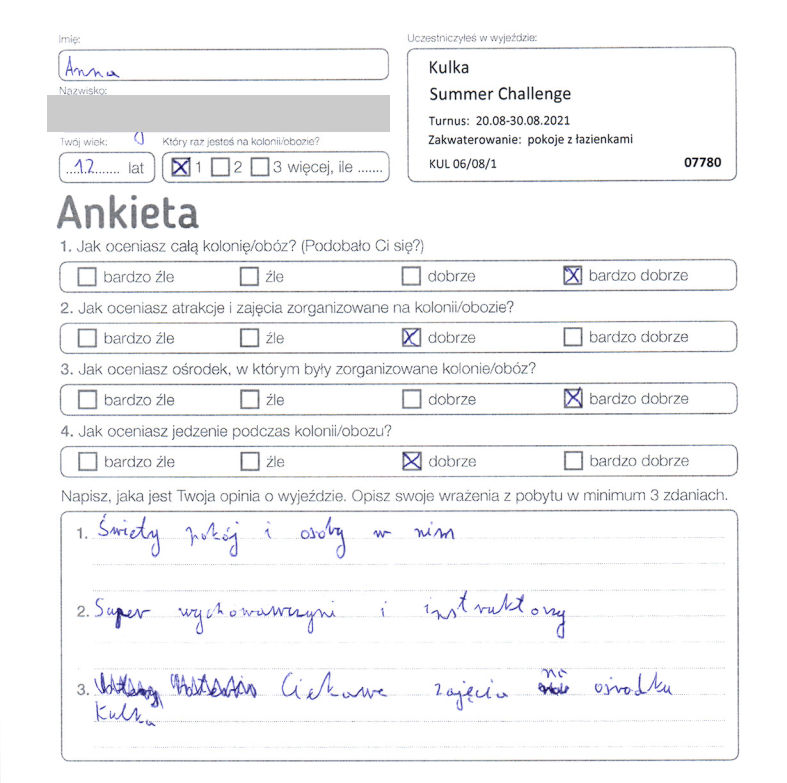 Imię:
Anna
Nazwisko:
Twój wiek:
12 lat
Który raz jesteś na kolonii/obozie?
1 2 3 więcej, ile .......
Uczestniczyłeś w wyjeździe:
Kulka
Summer Challenge
Turnus: 20.08-30.08.2021
Zakwaterowanie: pokoje z łazienkami
KUL 06/08/1 07780
Ankieta
1. Jak oceniasz całą kolonię/obóz? (Podobało Ci się?)
bardzo źle źle dobrze bardzo dobrze
2. Jak oceniasz atrakcje i zajęcia zorganizowane na kolonii/obozie?
bardzo źle źle dobrze bardzo dobrze
3. Jak oceniasz ośrodek, w którym były zorganizowane kolonie/obóz?
bardzo źle źle dobrze bardzo dobrze
4. Jak oceniasz jedzenie podczas kolonii/obozu?
bardzo źle źle dobrze bardzo dobrze
Napisz, jaka jest Twoja opinia o wyjeździe. Opisz swoje wrażenia z pobytu w minimum 3 zdaniach.
1. Świety pokój i osoby w nim
2. Super wychowawczyni i instruktorzy
3. Ciekawe zajęcia na ośrodku
Kulka